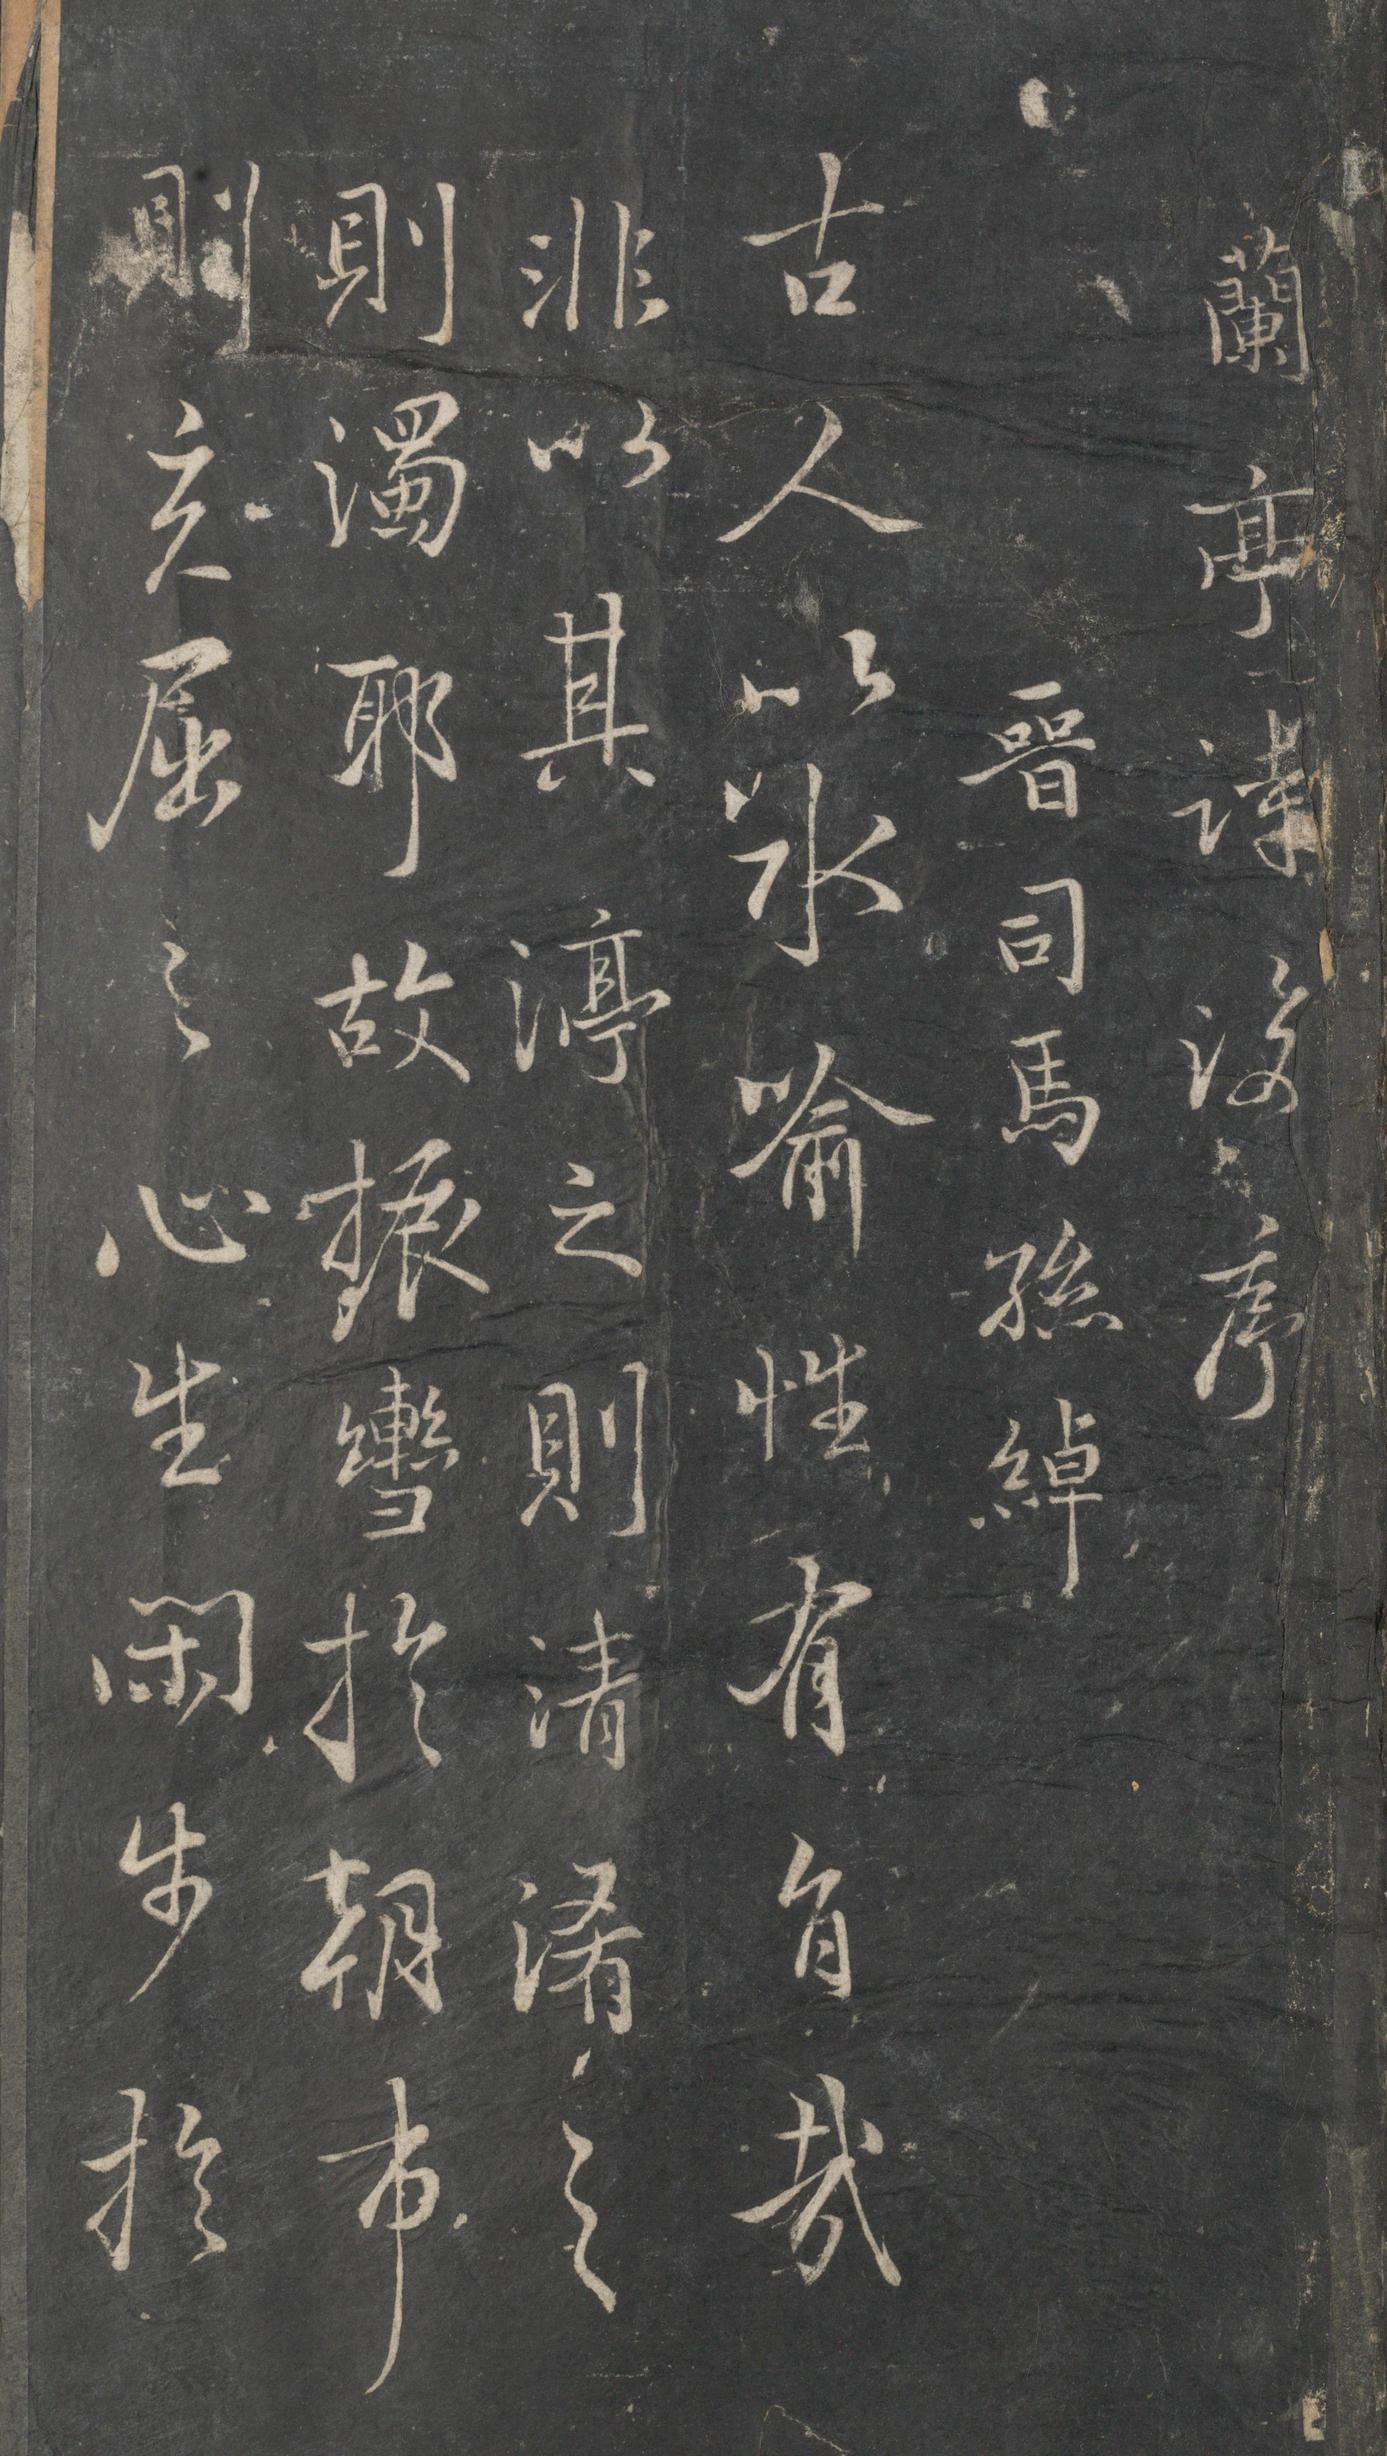 蘭亭詩後序
晉司馬孫綽
古人以水喻性有旨哉
非以其渟之則清淆之
則濁耶故振轡於朝市
則充屈之心生閑步於